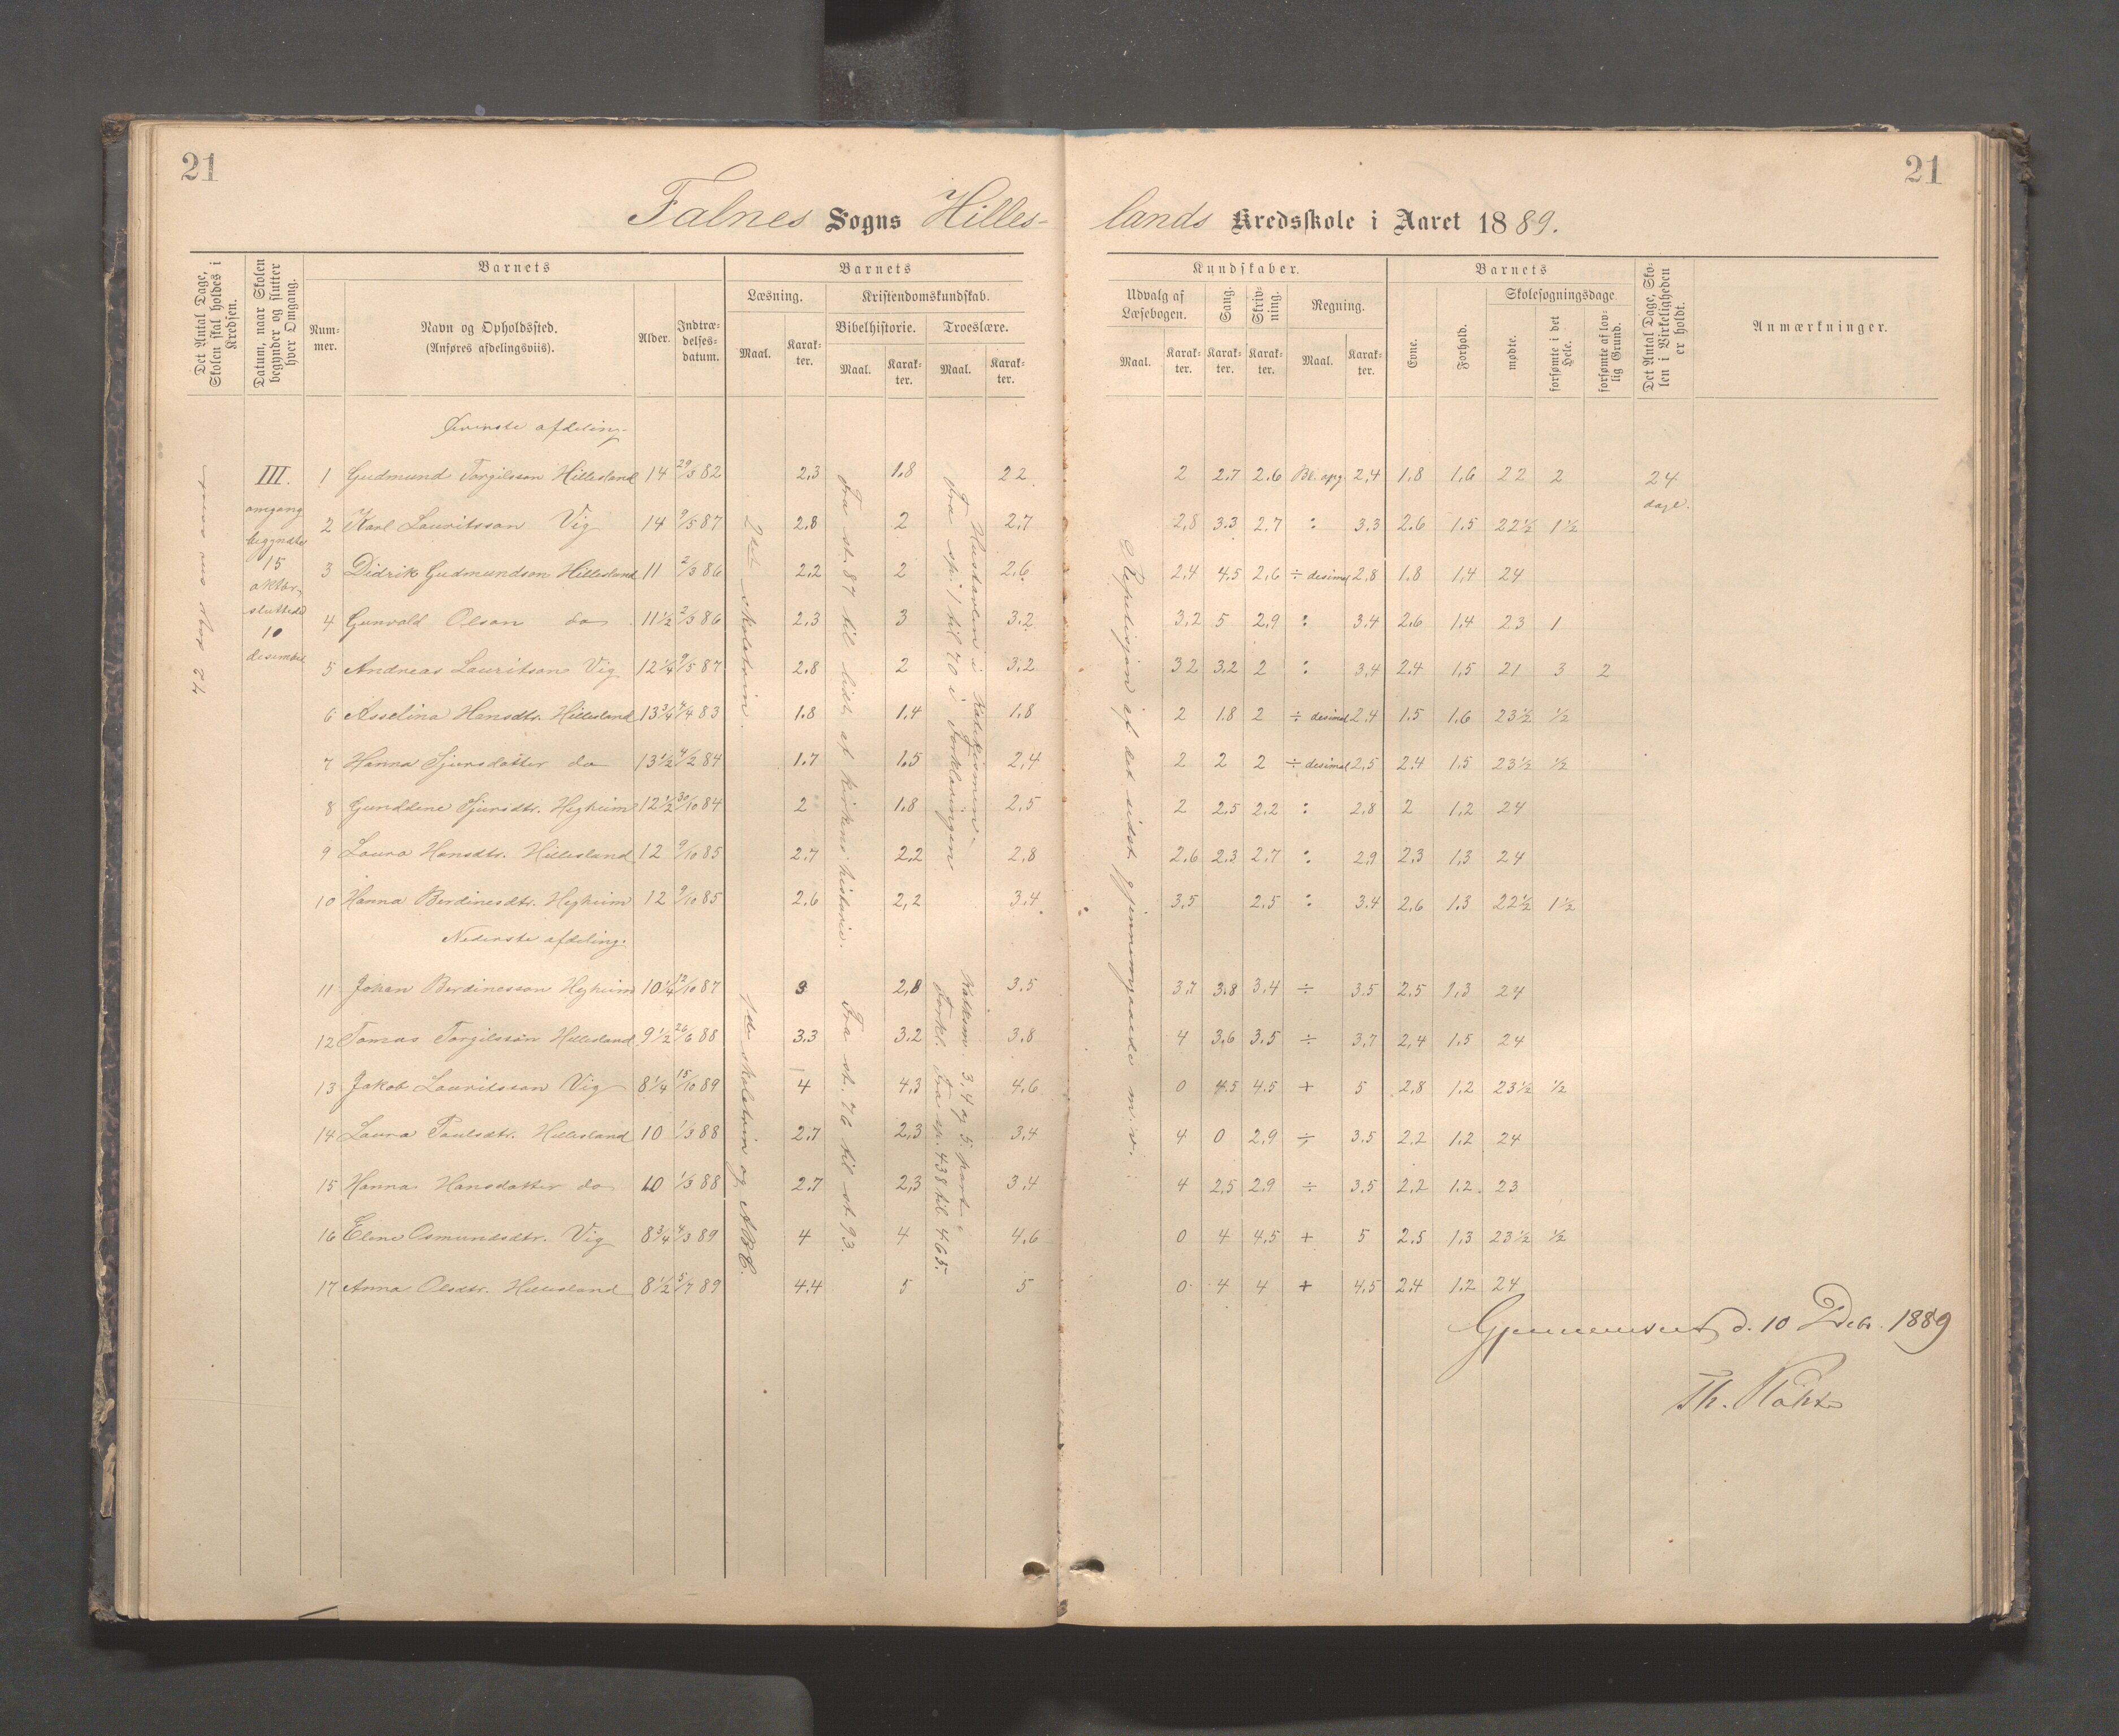 21
21
Falnes Sogns Hilles-
lands Kredsskole i Aaret 1889.
Det Antal Dage, Skolen skal holdes i Kredsen.
Datum, naar Skolen begynder og slutter hver Omgang.
Barnets
Nummer.
Navn og Opholdssted.
(Anføres afdelingsviis).
Alder.
Indtrædelses-datum.
Barnets
Læsning.
Maal.
Karakter.
Kristendomskundskab.
Bibelhistorie.
Maal.
Karakter.
Troeslære.
Maal.
Karakter.
Kundskaber.
Udvalg af Læsebogen.
Maal.
Karakter.
Sang.
Karakter.
Skrivning.
Karakter.
Regning.
Maal.
Karakter.
Barnets
Evne.
Forhold.
Skolesøgningsdage
mødte.
forsømte i det Hele.
forsømte af lovlig Grund.
Det Antal Dage, Skolen i Virkeligheden er holdt.
Anmærkninger.
Øverste afdeling.
III.
omgang
begyndte
15
oktbr,
sluttede
10
desember
1 Gudmund Torgilsson Hillesland 14 29/3 82 2,3 1.8 2 2 2 2.7 2.6 Bl. opg. 2,4 1.8 1,6 22 2 24 dage.
2 Karl Lauritsson Vig 14 9/5 87 2,8 2 2,7 2,8 3.3 2.7 : 3.3 2.6 1.5 22½ 1½
3 Didrik Gudmundson Hillesland 11 2/3 86 2,2 2 2.6 2,4 4.5 2,6 ÷ desimal 2,8 1.8 1,4 24
4 Gunvald Olson do 11½ 2/3 86 2,3 3 3.2 3,2 5 2,9 : 3.4 2.6 1.4 23 1
5 Andreas Lauritson Vig 12¼ 9/5 87 2.8 2 3.2 3 2 3,2 2 : 3,4 2.4 1,5 21 3 2
6 Asselina Hansdtr. Hillesland 13¾ 4/4 83 1.8 1.4 1.8 2 1.8 2 ÷ desimal 2,4 1.5 1,6 23½ ½
7 Hanna Sjursdatter do 13½ 4/2 84 1.7 1.5 2,4 2 2 2 ÷ desimal 2,5 2.4 1.5 23½ ½
8 Gunddene Sjursdtr. Hegheim 12½ 30/10 84 2 1.8 2,5 2 2,5 2.2 : 2,8 2 1,2 24
9 Laura Hansdtr. Hillesland 12 9/10 85 2.7 2,2 2,8 2,6 2,3 2,7 : 2,9 2,3 1,3 24
10 Hanna Berdinesdtr. Hegheim 12 9/10 85 2.6 2,2 3.4 3,5 2.5 : 3.4 2,6 1.3 22½ 1½
Nederste afdeling.
11 Johan Berdinesson Hegheim 10¼ 12/10 87 3 2,8 3.5 3.7 3.8 3.4 ÷ 3.5 2.5 1,3 24
12 Tomas Torgilsson Hillesland 9½ 26/6 88 3.3 3.2 3.8 4 3,6 3.5 ÷ 3,7 2,4 1.5 24
13 Jakob Lauritsson Vig 8¼ 15/10 89 4 4,3 4,6 0 4.5 4.5 + 5 2,8 1.2 23½ ½
14 Laura Paulsdtr. Hillesland 10 1/3 88 2.7 2,3 3,4 4 0 2,9 ÷ 3.5 2,2 1.2 24
15 Hanna Hansdatter do 10 1/3 88 2.7 2,3 3,4 4 2,5 2,9 ÷ 3.5 2,2 1.2 23
16 Eline Osmundsdtr. Vig 8¾ 4/3 89 4 4 4,6 0 4 4.5 + 5 2.5 1,3 23½ ½
17 Anna Olsdtr. Hillesland 8½ 5/7 89 4.4 5 5 0 4 4 + 4.5 2.4 1.2 24
2det skoletrin.
1ste skoletrin og ABC.
Fra st. 87 til lidt af kirkens historie.
Fra st. 76 til st 93.
Hustavlen i Katekismen.
Fra sp. 1 til 70 i Forklaringen
Katksm. 3, 4 og 5. part.
Forkl. fra sp. 438 til 465.
Repetisjon af det sidst gjennemgaaede m. v.
d. 10 Debr. 1889
Th.